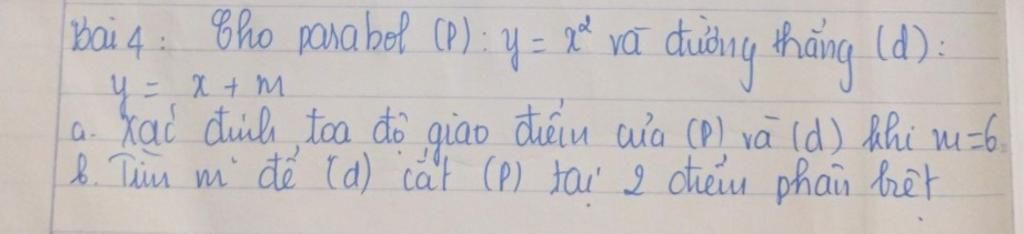 Bài 4: Cho parabol (P): y = x² và đường thẳng (d):
y = x + m
a. Xác định toạ độ giao điểm của (P) và (d) khi m=6.
b. Tìm m để (d) cắt (P) tại 2 điểm phân biệt